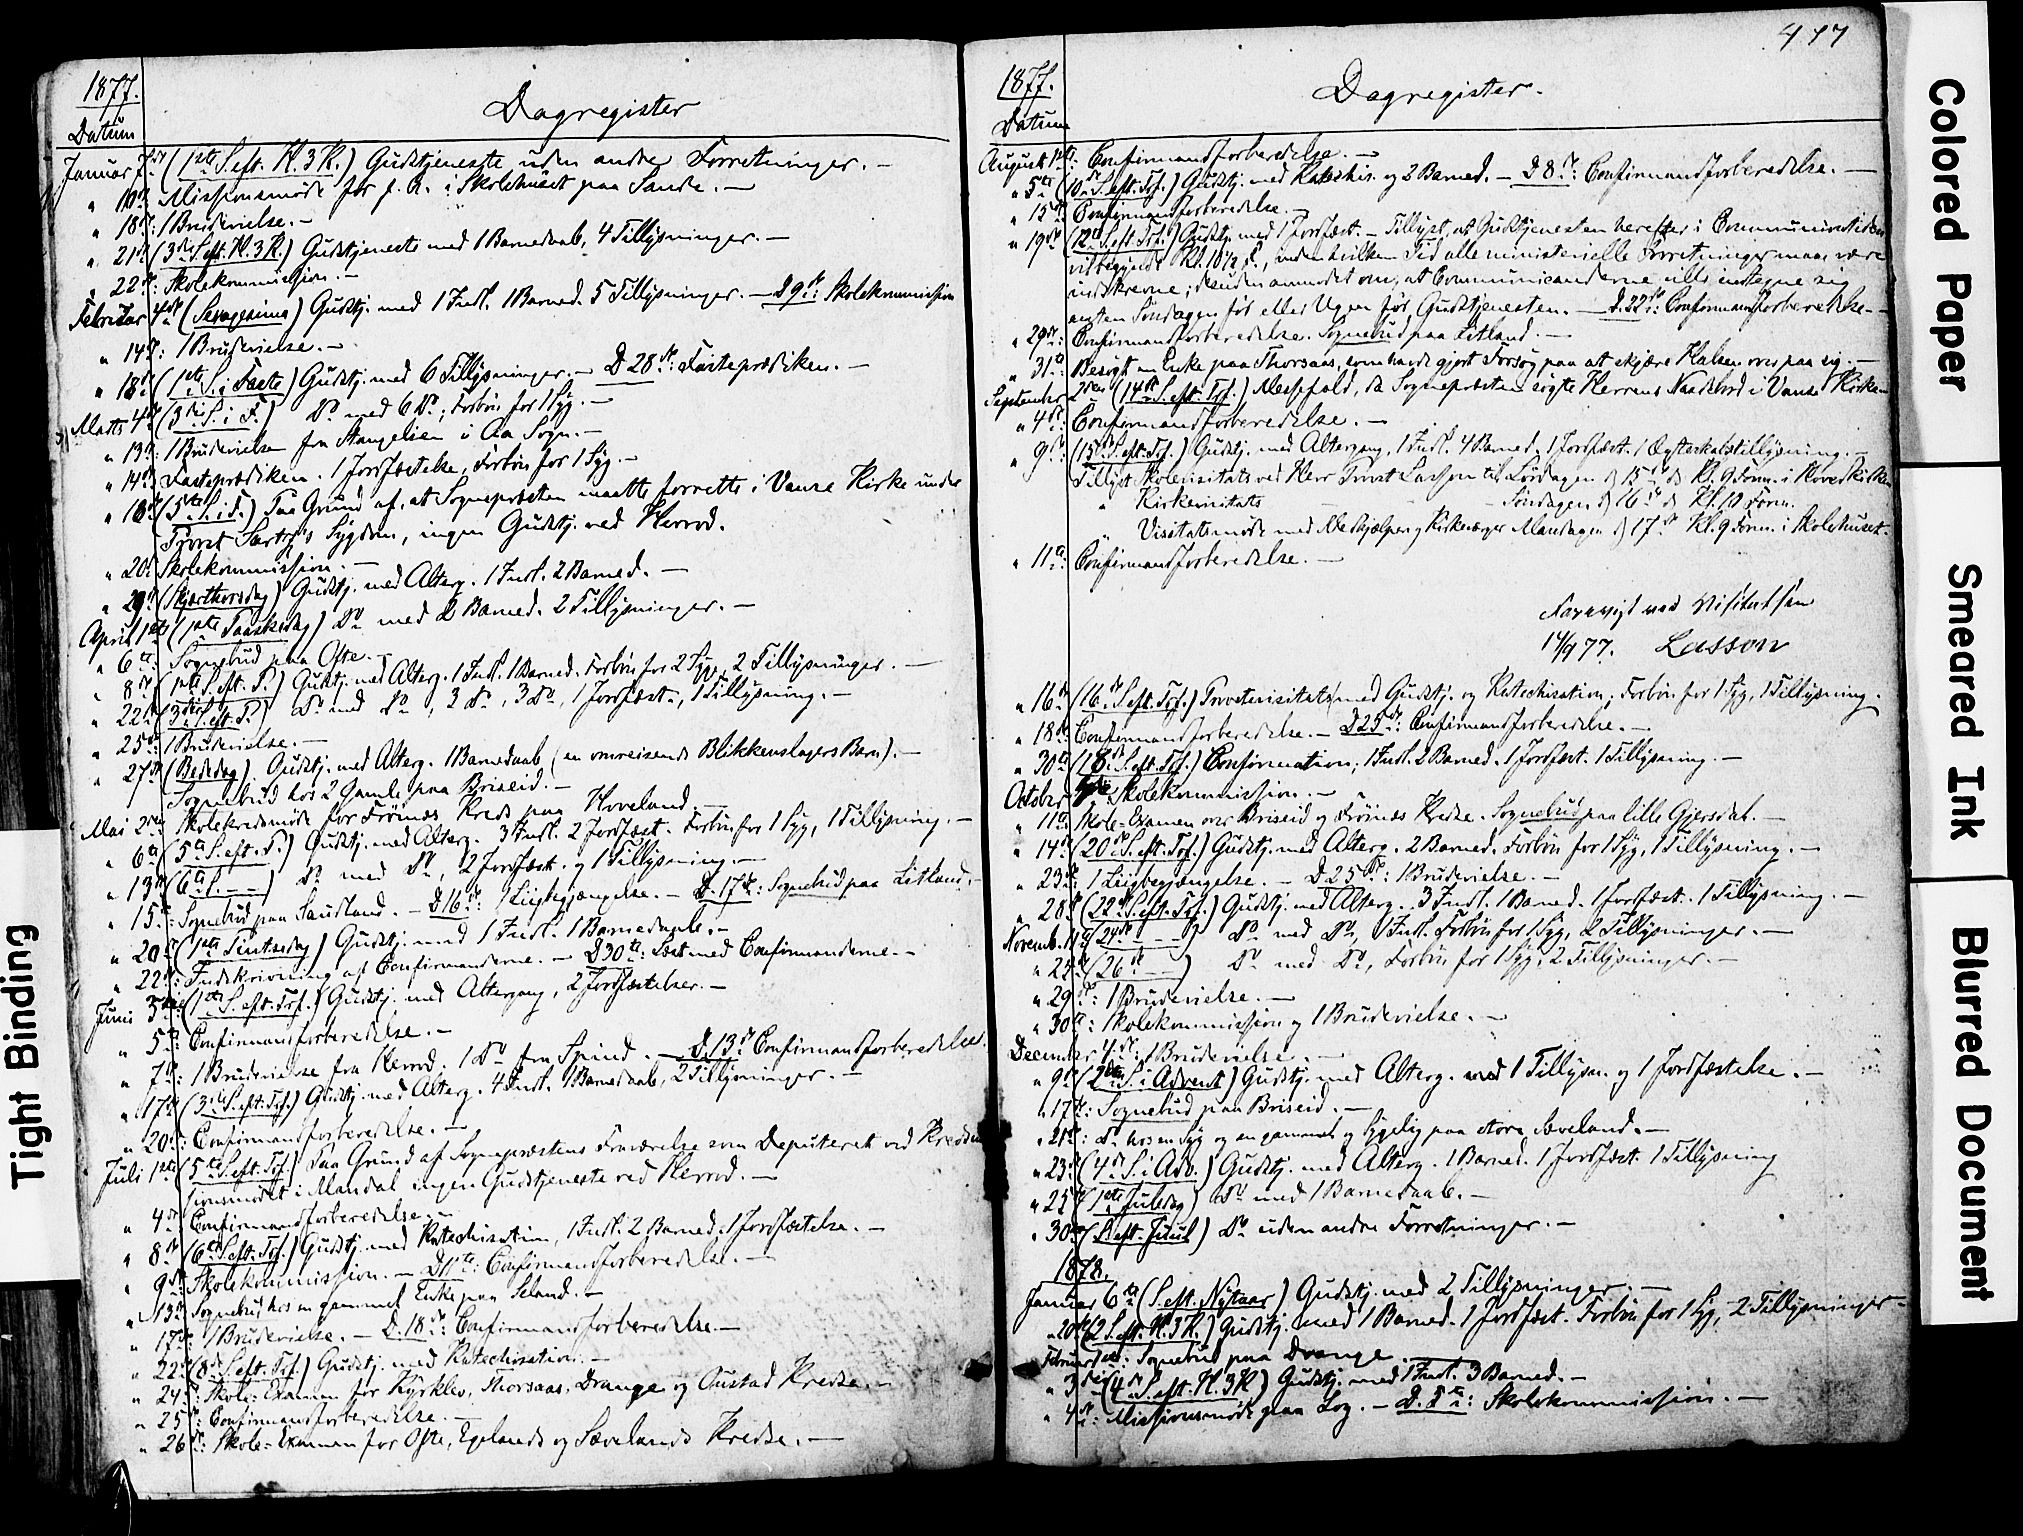 1877.
Datum
Dagregister
Januar 7de (1ste S. eft. H. 3 K.) Gudstjeneste uden andre Forretninger. —
" 10de Missionsmøde for f. A. i Skolehuset paa Sande. —
" 18de: 1 Brudevielse. —
" 21de (3die S. eft. H. 3 K.) Gudstjeneste med 1 Barnedaab, 4 Tillysninger. —
" 22de: Skolekommission. —
Februar 4de (Sexagesima) Gudstj. med 1 Indl. 1 Barned. 5 Tillysninger. — D 9de: Skolekommission
" 14de: 1 Brudevielse. —
" 18de (1ste S. i Faste) Gudstj. med 6 Tillysninger. — D 28de: Fasteprædiken. —
Marts 4de (3die S. i F.) Do med 6 Do; Forbøn for 1 Syg. —
" 13de: 1 Brudevielse fra Stangelien i Aa Sogn. —
" 14de: Fasteprædiken. 1 Jordfæstelse, Forbøn for 1 Syg. —
" 18de (5te S. i F.) Paa Grund af, at Sognepræsten maatte forrette i Vanse Kirke under
Provst Sygdom, ingen Gudstj. ved Herred.
" 20de Skolekommission. —
" 29de (Skjærthorsdag) Gudstj. med Alterg. 1 Indl. 2 Barned. —
April 1ste (1ste Paaskedag) Do med 2 Barned. 2 Tillysninger. —
" 6te: Sognebud paa Ofte. —
" 8de (1ste S. eft. P.) Gudstj. med Alterg. 1 Indl. 1 Barned. Forbøn for 2 Syge, 2 Tillysninger. —
" 22de (3die S. eft. P.) Do med Do, 3 Do, 3 Do, 1 Jordfæst., 1 Tillysning. —
" 25de: 1 Brudevielse. —
" 27de (Bededag). Gudstj. med Alterg. 1 Barnedaab (en omreisende Blikkenslagers Barn). —
Sognebud hos 2 Gamle paa Briseid. —
Mai 2den Skolekredsmøde for Frøinæs Kreds paa Hoveland. —
" 6te (5te S. eft. P.) Gudstj. med Alterg. 3 Indl. 2 Jordfæst. Forbøn for 1 Syg, 1 Tillysning. —
" 13de (6te S. — —) Do med Do, 2 Jordfæst. og 1 Tillysning. —
" 15de: Sognebud paa Saudland. — D 16de: 1 Liigbegjængelse. — D. 17de: Sognebud paa Litland. —
" 20de (1ste Pintsedag) Gudstj. med 1 Indl. 1 Barnedaab. —
" 22de: Indskrivning af Confirmanderne. — D 30te: Læst med Confirmanderne. —
Juni 3die: (1ste S. eft. Trf.) Gudstj. med Altergang, 2 Jordfæstelser. —
" 5te: Confirmandforberedelse. —
" 7de: 1 Brudevielse fra Herred. 1 Do fra Spind. — D. 13de Confirmandforberedelse.
" 17de (3die S. eft. Trf.) Gudstj. med Alterg. 4 Indl. 1 Barnedaab, 2 Tillysninger. —
" 20de: Confirmandforberedelse. —
Juli 1ste (5te S. eft. Trf.) Paa Grund af Sognepræstens Fraværelse som Deputeret ved
sionsmødet i Mandal ingen Gudstjeneste ved Herred. —
" 4de Confirmandforberedelse. —
" 8de (6te S. eft. Trf.) Gudstj. med Katechisation, 1 Indl. 2 Barned. 1 Jordfæstelse. —
" 9de: Skolekommission. — D 11te: Confirmandforberedelse. —
" 13de: Sognebud hos en gammel Enke paa Seland. —
" 17de: 1 Brudevielse. — D. 18de: Confirmandforberedelse. —
" 22de (8de S. eft. Trf.) Gudstj. med Katechisation. —
" 24de: Skole-Examen for Kyrklev, Thorsaas, Drange og Oustad Kredse. —
" 25de: Confirmandforberedelse. —
" 26de: Skole-Examen for Ofte, Egelands og Sævelands Kredse. —
477
1877.
Datum
Dagregister.
August 1ste: Confirmandforberedelse. —
" 5te (10de S. eft. Trf.) Gudstj. med Katechis. og 2 Barned. — D 8de: Confirmandforberedelse. —
" 15de Confirmandforberedelse. —
" 19de (12te S. eft. Trf.) Gudstj. med 1 Jordfæst. — Tillyst, at Gudstjenesten herefter i Communionstiden
vil begynde Kl. 10½, inden hvilken Tid alle ministerielle Forretninger maa være
indskrevne; desuden anmodet om, at Communicanderne ville indtegne sig
enten Søndagen før eller Ugen før Gudstjenesten. — D. 22de: Confirmandforberedelse. —
" 29de: Confirmandforberedelse. Sognebud paa Litland. —
" 31te: Besøgt en Enke paa Thorsaas, som havde gjort Forsøg paa at skjære Halsen over paa sig. —
September 2den (14de S. eft. Trf.) Messefald, da Sognepræsten søgte Herrens Naadebord i Vanse Kirke
" 4de: Confirmandforberedelse. —
" 9de (15de S. eft. Trf.) Gudstj. med Altergang, 1 Indl. 4 Barned. 1 Jordfæst. 1 Ægteskabstillysning. —
Tillyst Skolevisitats ved Herr Provst Lasson til Lørdagen d. 15de ds Kl. 9 Form. i Hovedkirken
" Kirkevisitats — Søndagen d. 16de ds Kl. 10 Form.
" Visitatsmøde med Medhjælper og Kirkeværger Mandagen d. 17de Kl. 9 Form. i Skolehuset.
" 11te: Confirmandforberedelse. —
Foreviist ved Visitatsen
17/9 77. Lasson
" 16de (16de S. eft. Trf.) Provstevisitats med Gudstj. og Katechisation; Forbøn for 1 Syg, 1 Tillysning.
" 18de: Confirmandforberedelse. — D 25de: Confirmandforberedelse. —
" 30te (18de S. eft. Trf.) Confirmation; 1 Indl. 2 Barned. 1 Jordfæst. 1 Tillysning. —
October Skolekommission. —
" 11te Skole-Examen over Briseid og Frøinæs Kredse. Sognebud paa lille Gjersdal. —
" 14de (20de S. eft. Trf.) Gudstj. med Alterg. 2 Barned. Forbøn for 1 Syg, 1 Tillysning. —
" 23de: 1 Liigbegjængelse. — D 25de: 1 Brudevielse. —
" 28de (22de S. eft. Trf.) Gudstj. med Alterg. 3 Indl. 1 Barned. 1 Jordfæst. 1 Tillysning. —
Novemb. 11te (24de — —) Do med Do, 1 Indl. Forbøn for 1 Syg, 2 Tillysninger. —
" 25de (26de — —) Do med Do, Forbøn for 1 Syg, 2 Tillysninger. —
" 29de: 1 Brudevielse. —
" 30te: Skolekommission og 1 Brudevielse. —
December 4de: 1 Brudevielse. —
" 9de (2den S. i Advent) Gudstj. med Alterg. med 1 Tillysn. og 1 Jordfæstelse. —
" 17de: Sognebud paa Briseid. —
" 21de: Do hos en Syg og en gammel og sygelig paa store Sæveland. —
" 23de (4de S. i Adv.) Gudstj. med Alterg. 1 Barned. 1 Jordfæst. 1 Tillysning
" 25de (1ste Juledag) Do med 1 Barnedaab. —
" 30te (S. eft. Juul) Do uden andre Forretninger. —
1878.
Januar 6te (S. eft. Nytaar) Gudstj. med 2 Tillysninger. —
" 20de (2 S. eft. H. 3 K.) Gudstj. med 1 Barned. 1 Jordfæst. Forbøn for 1 Syg, 2 Tillysninger —
Februar 1ste: Sognebud paa Drange.
" 3die (4de S. eft. H. 3 K) Gudstj. med 1 Indl. 3 Barned. —
" 4de: Missionsmøde paa Log. — D. 5te: Skolekommission. —
Tight Binding
Colored Paper
Smeared Ink
Blurred Document